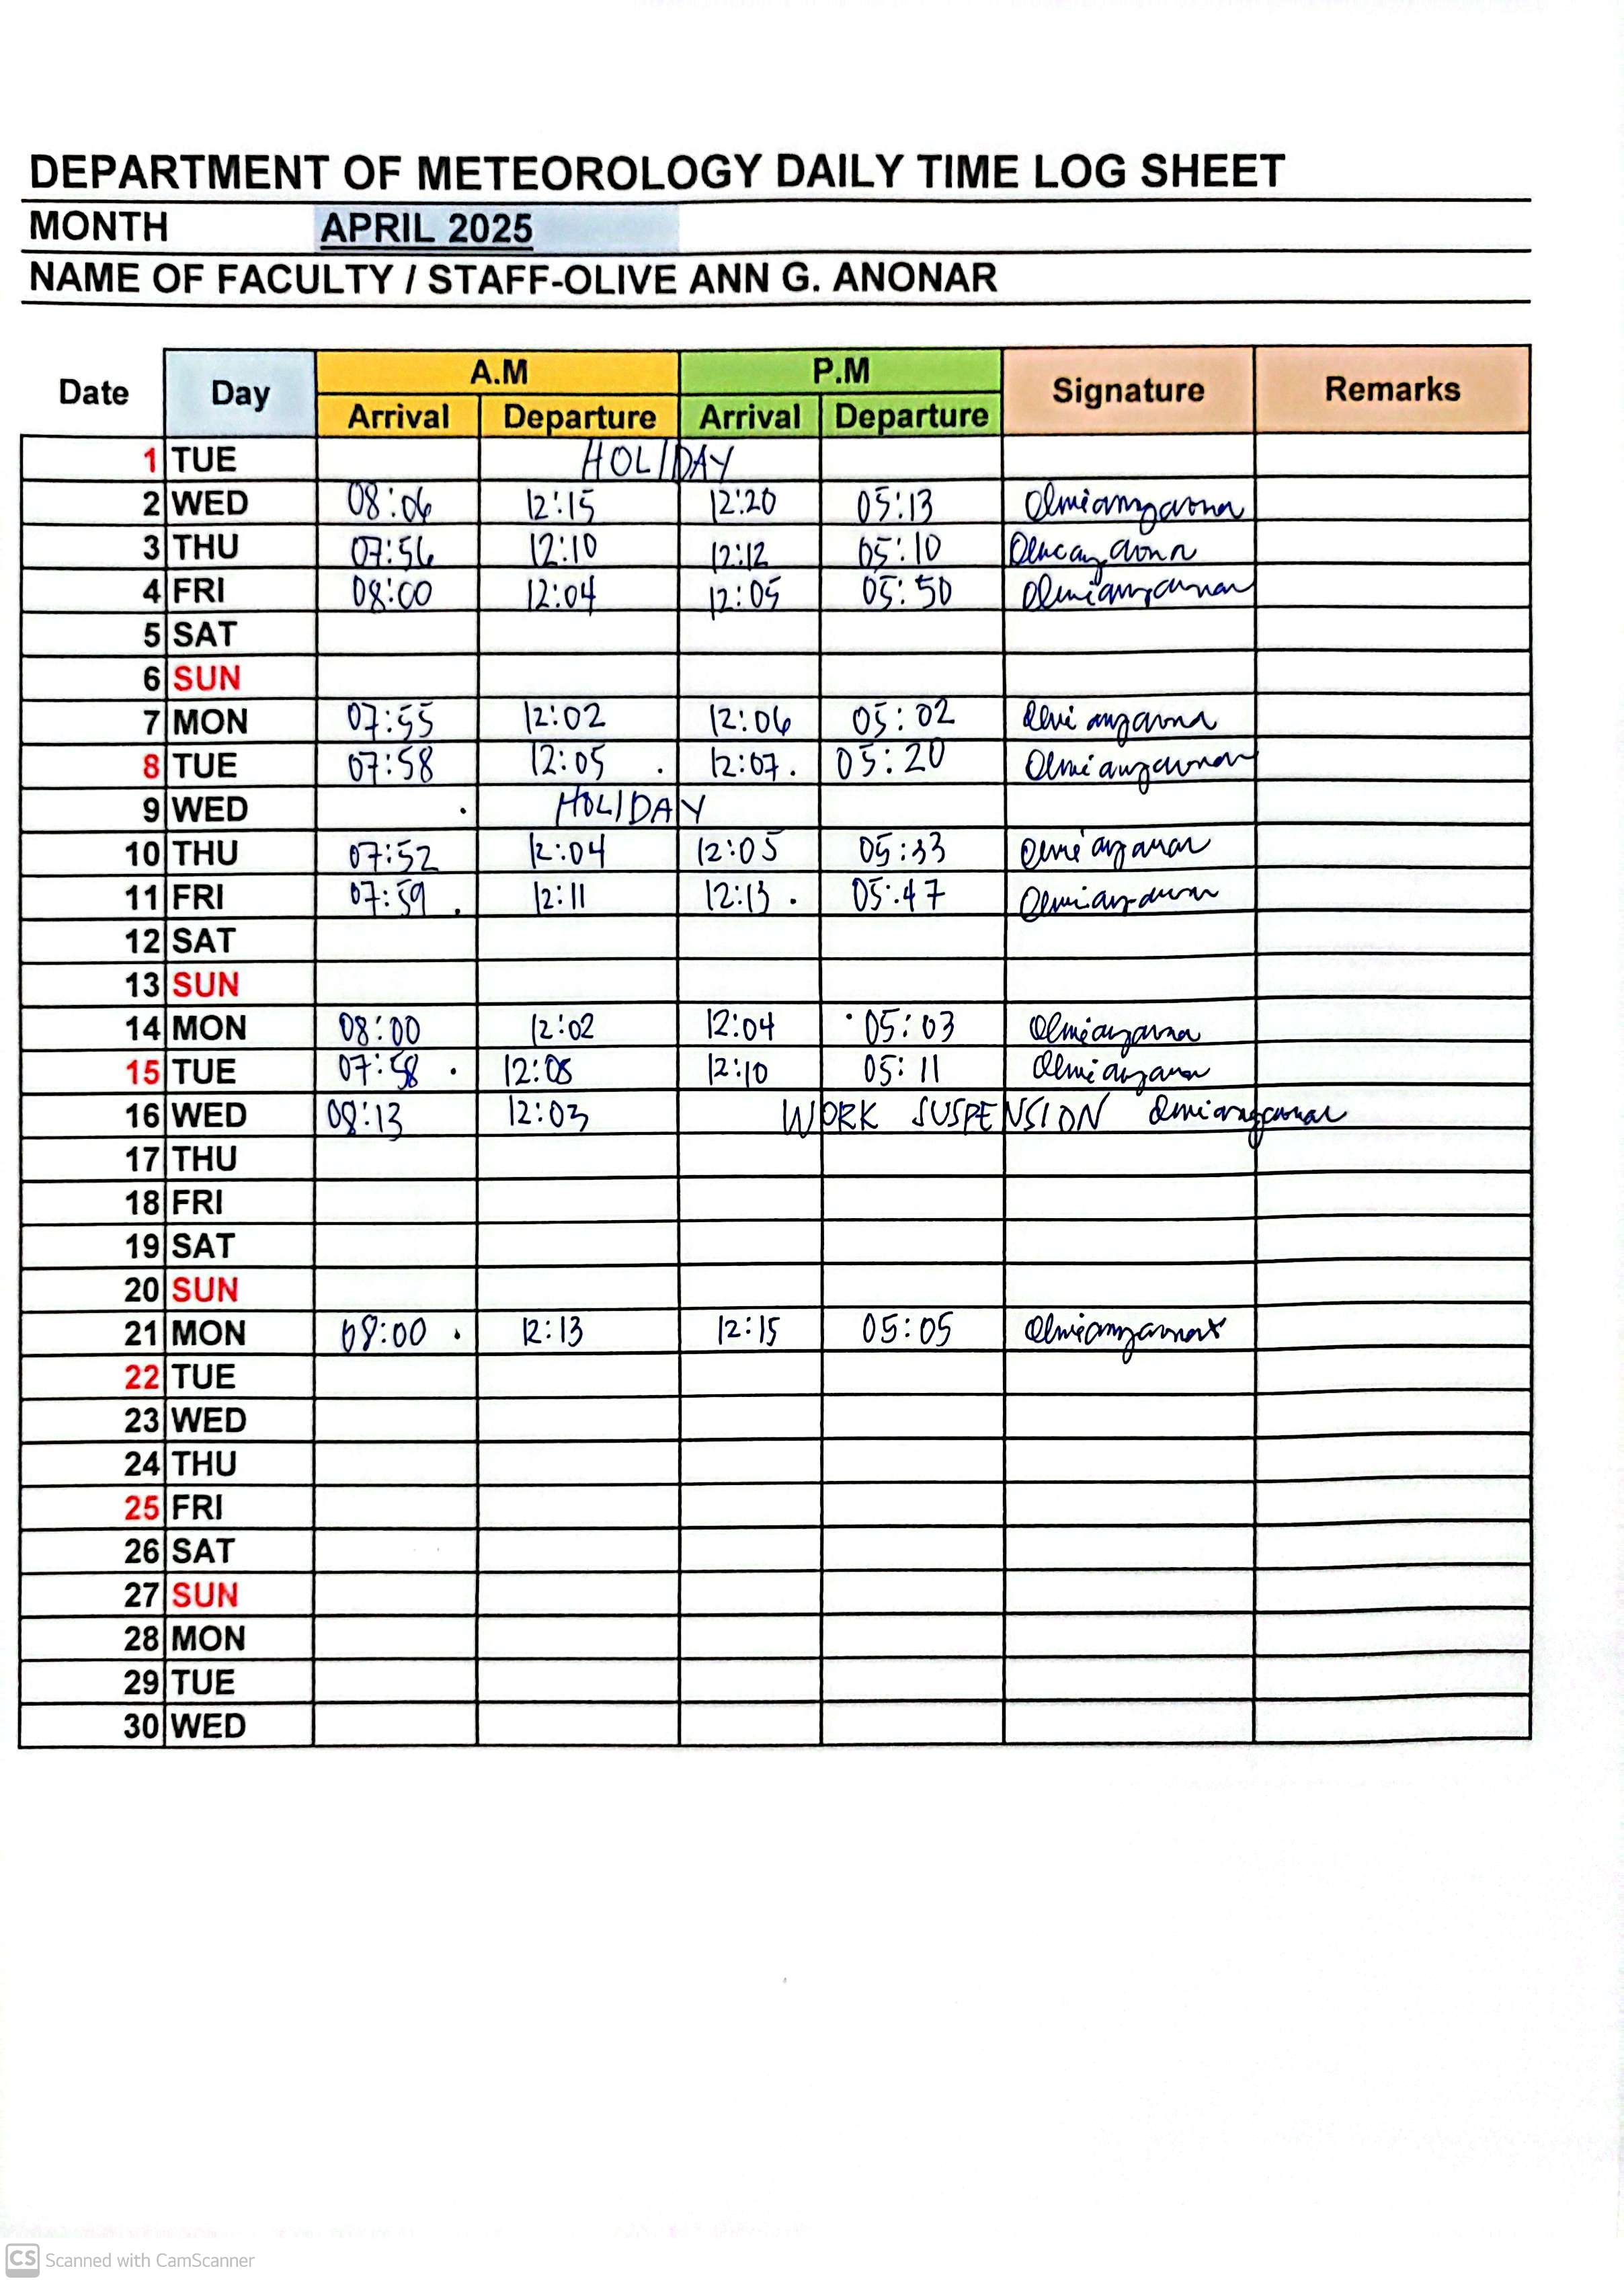 DEPARTMENT OF METEOROLOGY DAILY TIME LOG SHEET
MONTH APRIL 2025
NAME OF FACULTY / STAFF-OLIVE ANN G. ANONAR
Date Day A.M P.M Signature Remarks
Arrival Departure Arrival Departure
1 TUE HOLIDAY
2 WED 08:06 12:15 12:20 05:13
3 THU 07:56 12:10 12:12 05:10
4 FRI 08:00 12:04 12:05 05:50
5 SAT
6 SUN
7 MON 07:55 12:02 12:06 05:02
8 TUE 07:58 12:05 12:07 05:20
9 WED HOLIDAY
10 THU 07:52 12:04 12:05 05:33
11 FRI 07:59 12:11 12:13 05:47
12 SAT
13 SUN
14 MON 08:00 12:02 12:04 05:03
15 TUE 07:58 12:08 12:10 05:11
16 WED 08:13 12:03 WORK SUSPENSION
17 THU
18 FRI
19 SAT
20 SUN
21 MON 08:00 12:13 12:15 05:05
22 TUE
23 WED
24 THU
25 FRI
26 SAT
27 SUN
28 MON
29 TUE
30 WED
CS Scanned with CamScanner